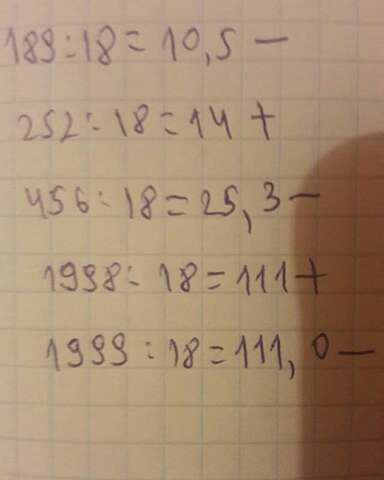 189:18=10,5 —
252:18=14 +
456:18=25,3 —
1998:18=111 +
1999:18=111,0 —